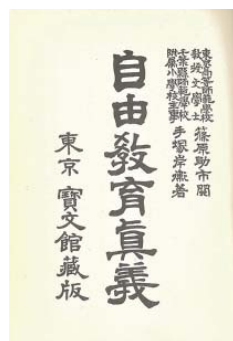 東京高等師範學校
教授文學士
篠原助市閲
千葉縣師範學校
附屬小學校主事
手塚岸衞著
自由敎育眞義
東京 寶文館藏版